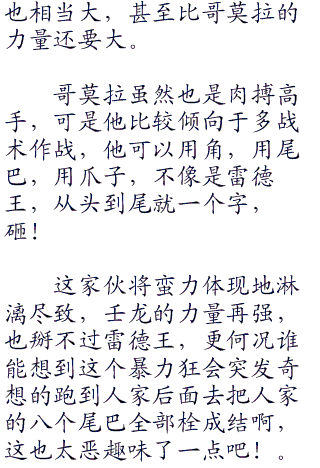 也相当大，甚至比哥莫拉的
力量还要大。
哥莫拉虽然也是肉搏高
手，可是他比较倾向于多战
术作战，他可以用角，用尾
巴，用爪子，不像是雷德
王，从头到尾就一个字，
砸！
这家伙将蛮力体现地淋
漓尽致，壬龙的力量再强，
也掰不过雷德王，更何况谁
能想到这个暴力狂会突发奇
想的跑到人家后面去把人家
的八个尾巴全部栓成结啊，
这也太恶趣味了一点吧！。